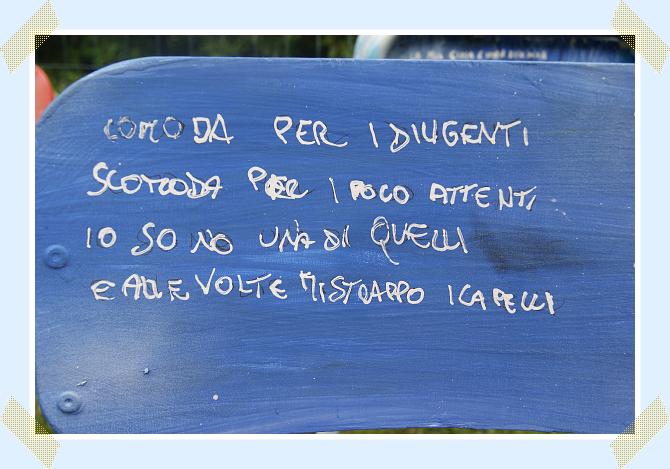 COMODA PER I DILIGENTI
SCOMODA PER I POCO ATTENTI
IO SONO UNA DI QUELLI
E ALLE VOLTE MI STRAPPO I CAPELLI